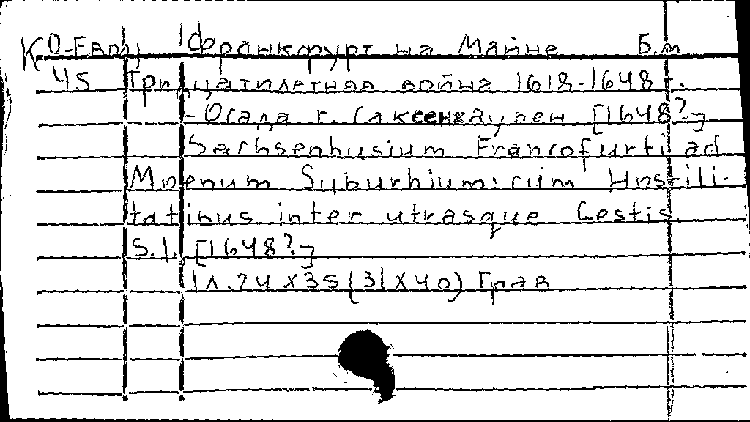 К0-Евр Франкфурт на Майне Б.м
45 Тридцатилетняя война 1618-1648 г.
- Осада г. Саксенхаузен [1648?]
Sachsenhusium Francofurti ad
Moenum Suburbium: cum Hostili-
tatibus inter utrasque Gestis
S.l. [1648?]
1л. 24 х 35 (31 х 40) Грав